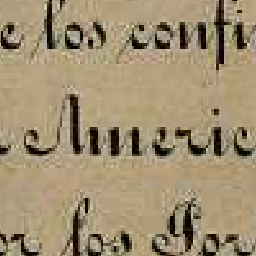 e los confi
Americ
or los Por